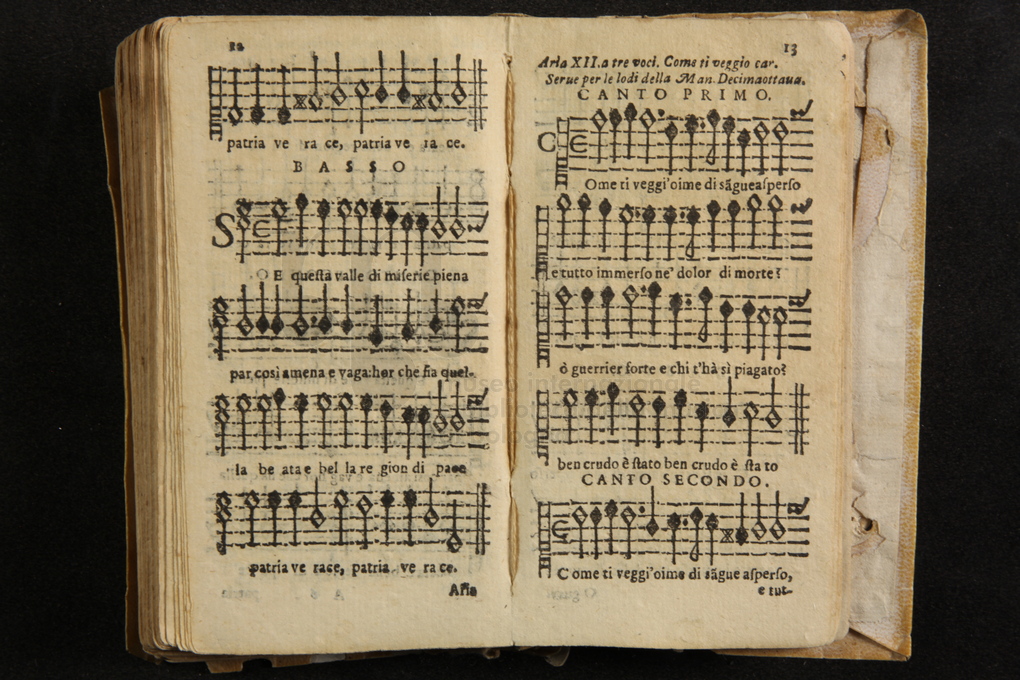 12
patria ve ra ce, patria ve ra ce.
BASSO
SO E questa valle di miserie piena
par così amena e vaga: hor che fia quel-
la be ata e bel la re gion di pace
patria ve race, patria ve ra ce.
Aria
13
Aria XII. a tre voci. Come ti veggio car.
Serue per le lodi della Man. Decimaottaua.
CANTO PRIMO.
COme ti veggi'oime di sãgue asperso
e tutto immerso ne' dolor di morte?
ò guerrier forte e chi t'hà sì piagato?
ben crudo è stato ben crudo è sta to
CANTO SECONDO.
Come ti veggi'oime di sãgue asperso,
e tut-